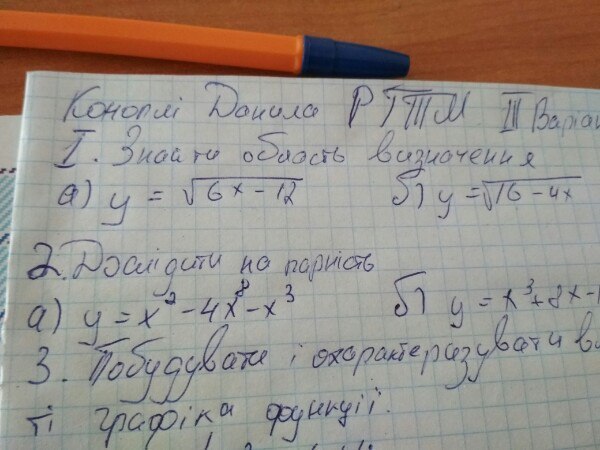 Коноплі Данила РТТМ III Варіан
I. Знайти область визначення
а) y = √6x – 12   б) y = √16 – 4x
2. Дослідити на парність
а) y = x² – 4x⁸ – x³   б) y = x³ + 8x – 1
3. Побудувати і охарактеризувати
ті графіка функції.